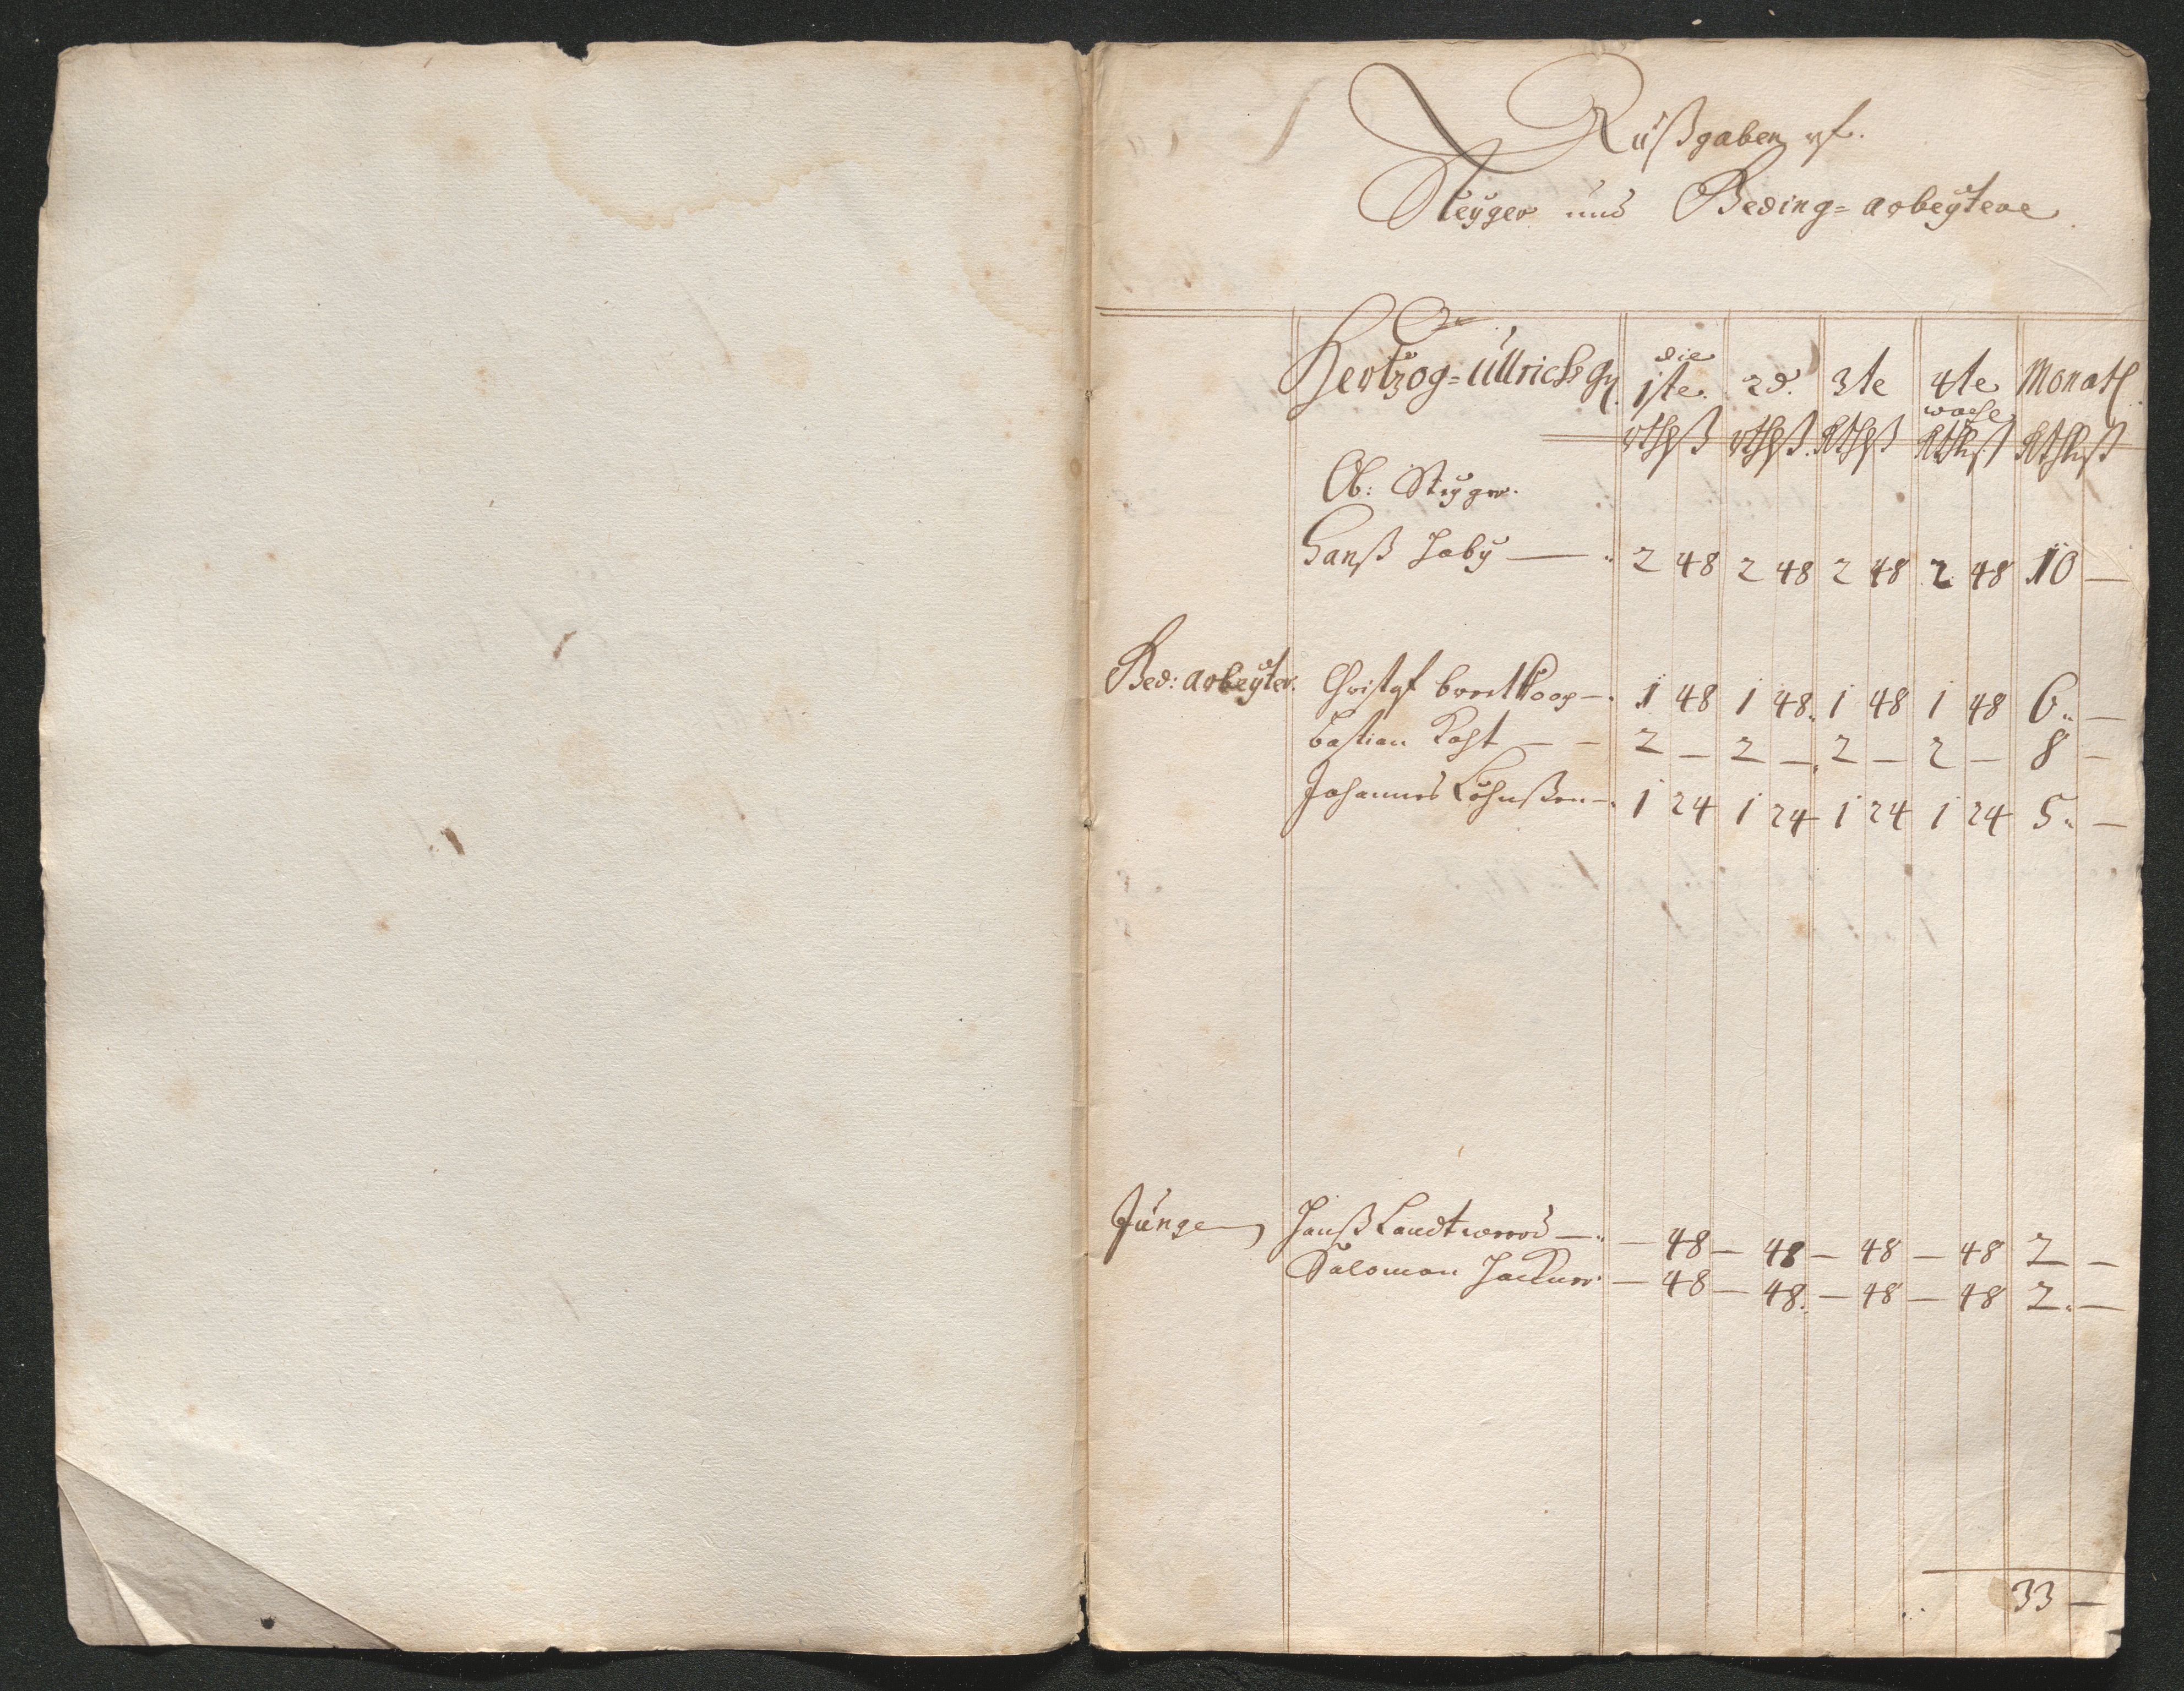 Außgaben uf.
Steyger und Beding=arbeytere
Hertzog=Ullrichs die 1ste. 2d. 3te 4te woche Monatl.
Rthlß Rthlß. Rthlß Rthlß Rthlß
Ob: Steyger.
Hanß — 2 48 2 48 2 48 2 48 10 —
Bed: arbeyter. Christof — 1 48 1 48 1 48 1 48 6 —
bastian — — 2 — 2 — 2 — 2 — 8 —
Johannes — 1 24 1 24 1 24 1 24 5 —
Jungen Hanß — — 48 — 48 — 48 — 48 2 —
Salomon — 48 — 48 — 48 — 48 2 —
33 —